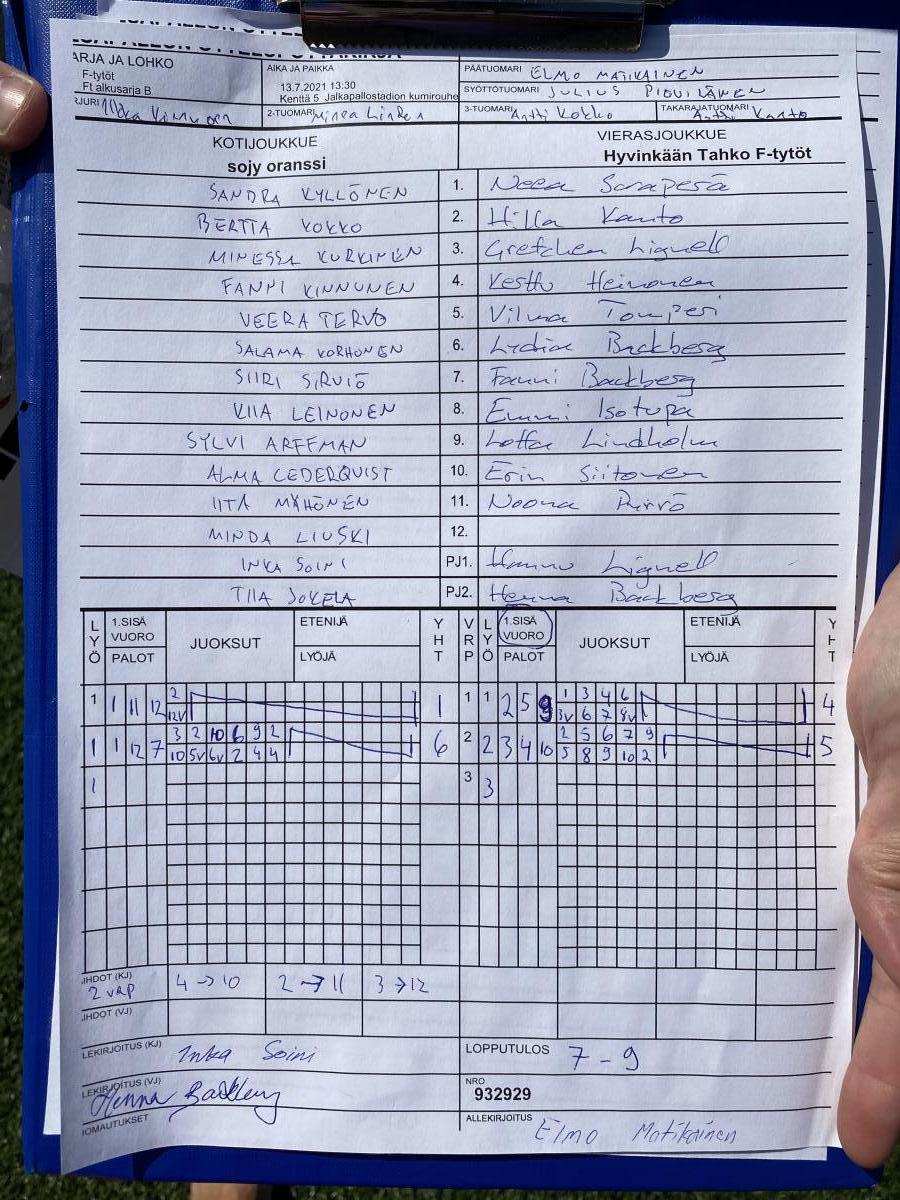 ARJA JA LOHKO
F-tytöt
Ft alkusarja B
AIKA JA PAIKKA
13.7.2021 13:30
Kenttä 5 Jalkapallostadion kumirouhe
PÄÄTUOMARI ELMO MATIKAINEN
SYÖTTÖTUOMARI JULIUS
2-TUOMARI Minea Linden
3-TUOMARI Antti Kokko
TAKARAJATUOMARI Antti Kanto
KOTIJOUKKUE
sojy oranssi
VIERASJOUKKUE
Hyvinkään Tahko F-tytöt
SANDRA KYLLÖNEN 1. Neea Sorapesä
BERTTA KOKKO 2. Hilla Kanto
MINESSA KURKINEN 3. Gretchen Lignell
FANNI KINNUNEN 4. Kerttu Heinonen
VEERA TERVO 5. Vilma Tomperi
SALAMA KORHONEN 6. Lydia Backberg
SIIRI SIRVIÖ 7. Fanni Backberg
VIIA LEINONEN 8. Emmi Isotupa
SYLVI ARFFMAN 9. Lotta Lindholm
ALMA CEDERQUIST 10. Erin Siitonen
IITA MÄHÖNEN 11. Noona Purro
MINDA LIUSKI 12.
INKA SOINI PJ1. Hannu Lignell
TIIA JOKELA PJ2. Henna Backberg
LYÖ 1.SISÄ VUORO PALOT JUOKSUT ETENIJÄ LYÖJÄ YHT VRP LYÖ 1.SISÄ VUORO PALOT JUOKSUT ETENIJÄ LYÖJÄ YHT
1 1 11 12 2 1 1 1 2 5 9 1 3 4 6 4
12V 3V 6 7 8V
1 1 12 7 3 2 10 6 9 2 6 2 2 3 4 10 2 5 6 7 9 5
10 5V 6V 2 4 4 5 8 9 10 2
1 3 3
IHDOT (KJ)
2 VRP 4→10 2→11 3→12
IHDOT (VJ)
LEKIRJOITUS (KJ) Inka Soini
LOPPUTULOS 7-9
LEKIRJOITUS (VJ) Henna Backberg
NRO
932929
IOMAUTUKSET
ALLEKIRJOITUS Elmo Matikainen